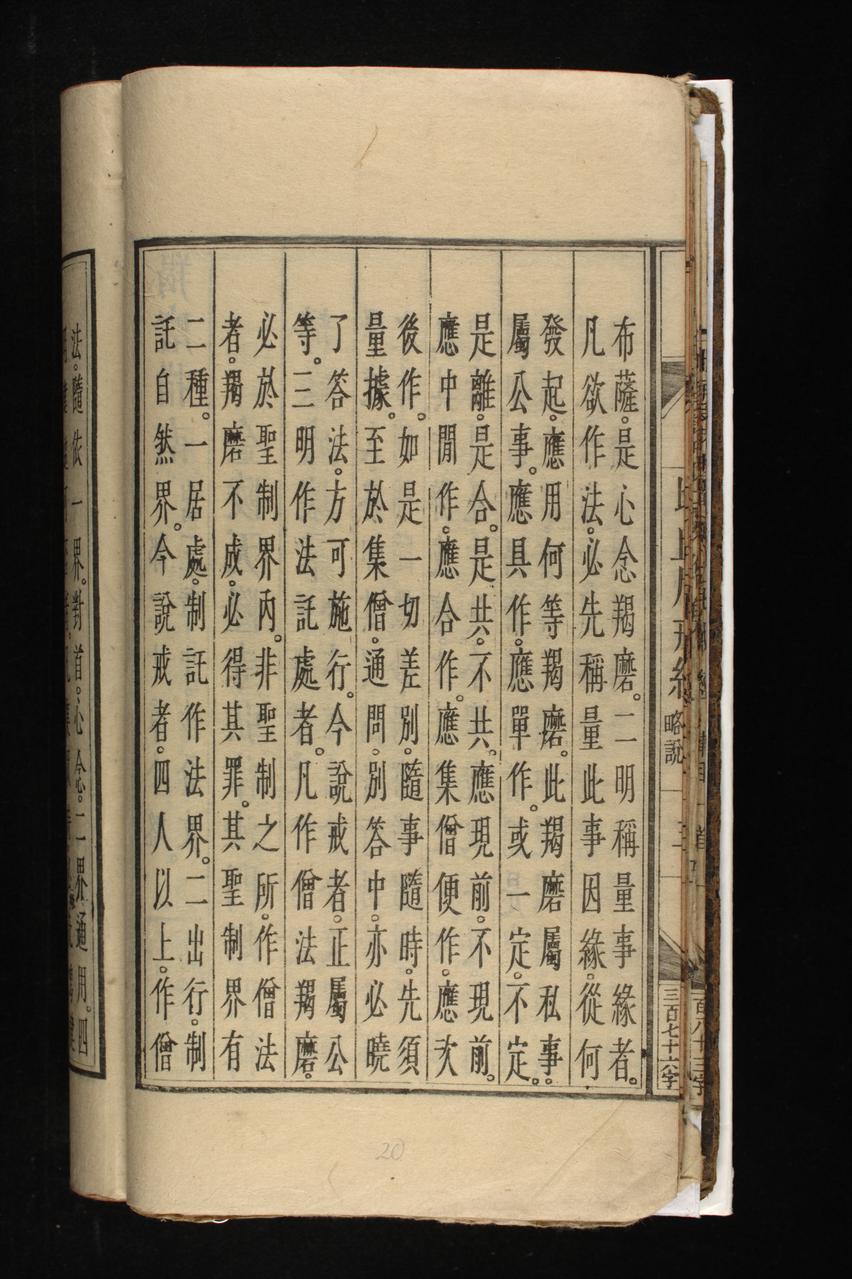 布薩。是心念羯磨。二明稱量事緣者。
凡欲作法。必先稱量此事因緣。從何
發起。應用何等羯磨。此羯磨屬私事。
屬公事。應具作。應單作。或一定。不定。
是離。是合。是共。不共。應現前。不現前。
應中間作。應合作。應集僧便作。應次
後作。如是一切差別。隨事隨時。先須
量據。至於集僧。通問。別答中。亦必曉
了答法。方可施行。今說戒者。正屬公
等。三明作法託處者。凡作僧法羯磨。
必於聖制界內。非聖制之所。作僧法
者。羯磨不成。必得其罪。其聖制界有
二種。一居處。制託作法界。二出行。制
託自然界。今說戒者。四人以上。作僧
法。隨依一界。對首。心念。二界通用。四
略說
三百七十六字
20